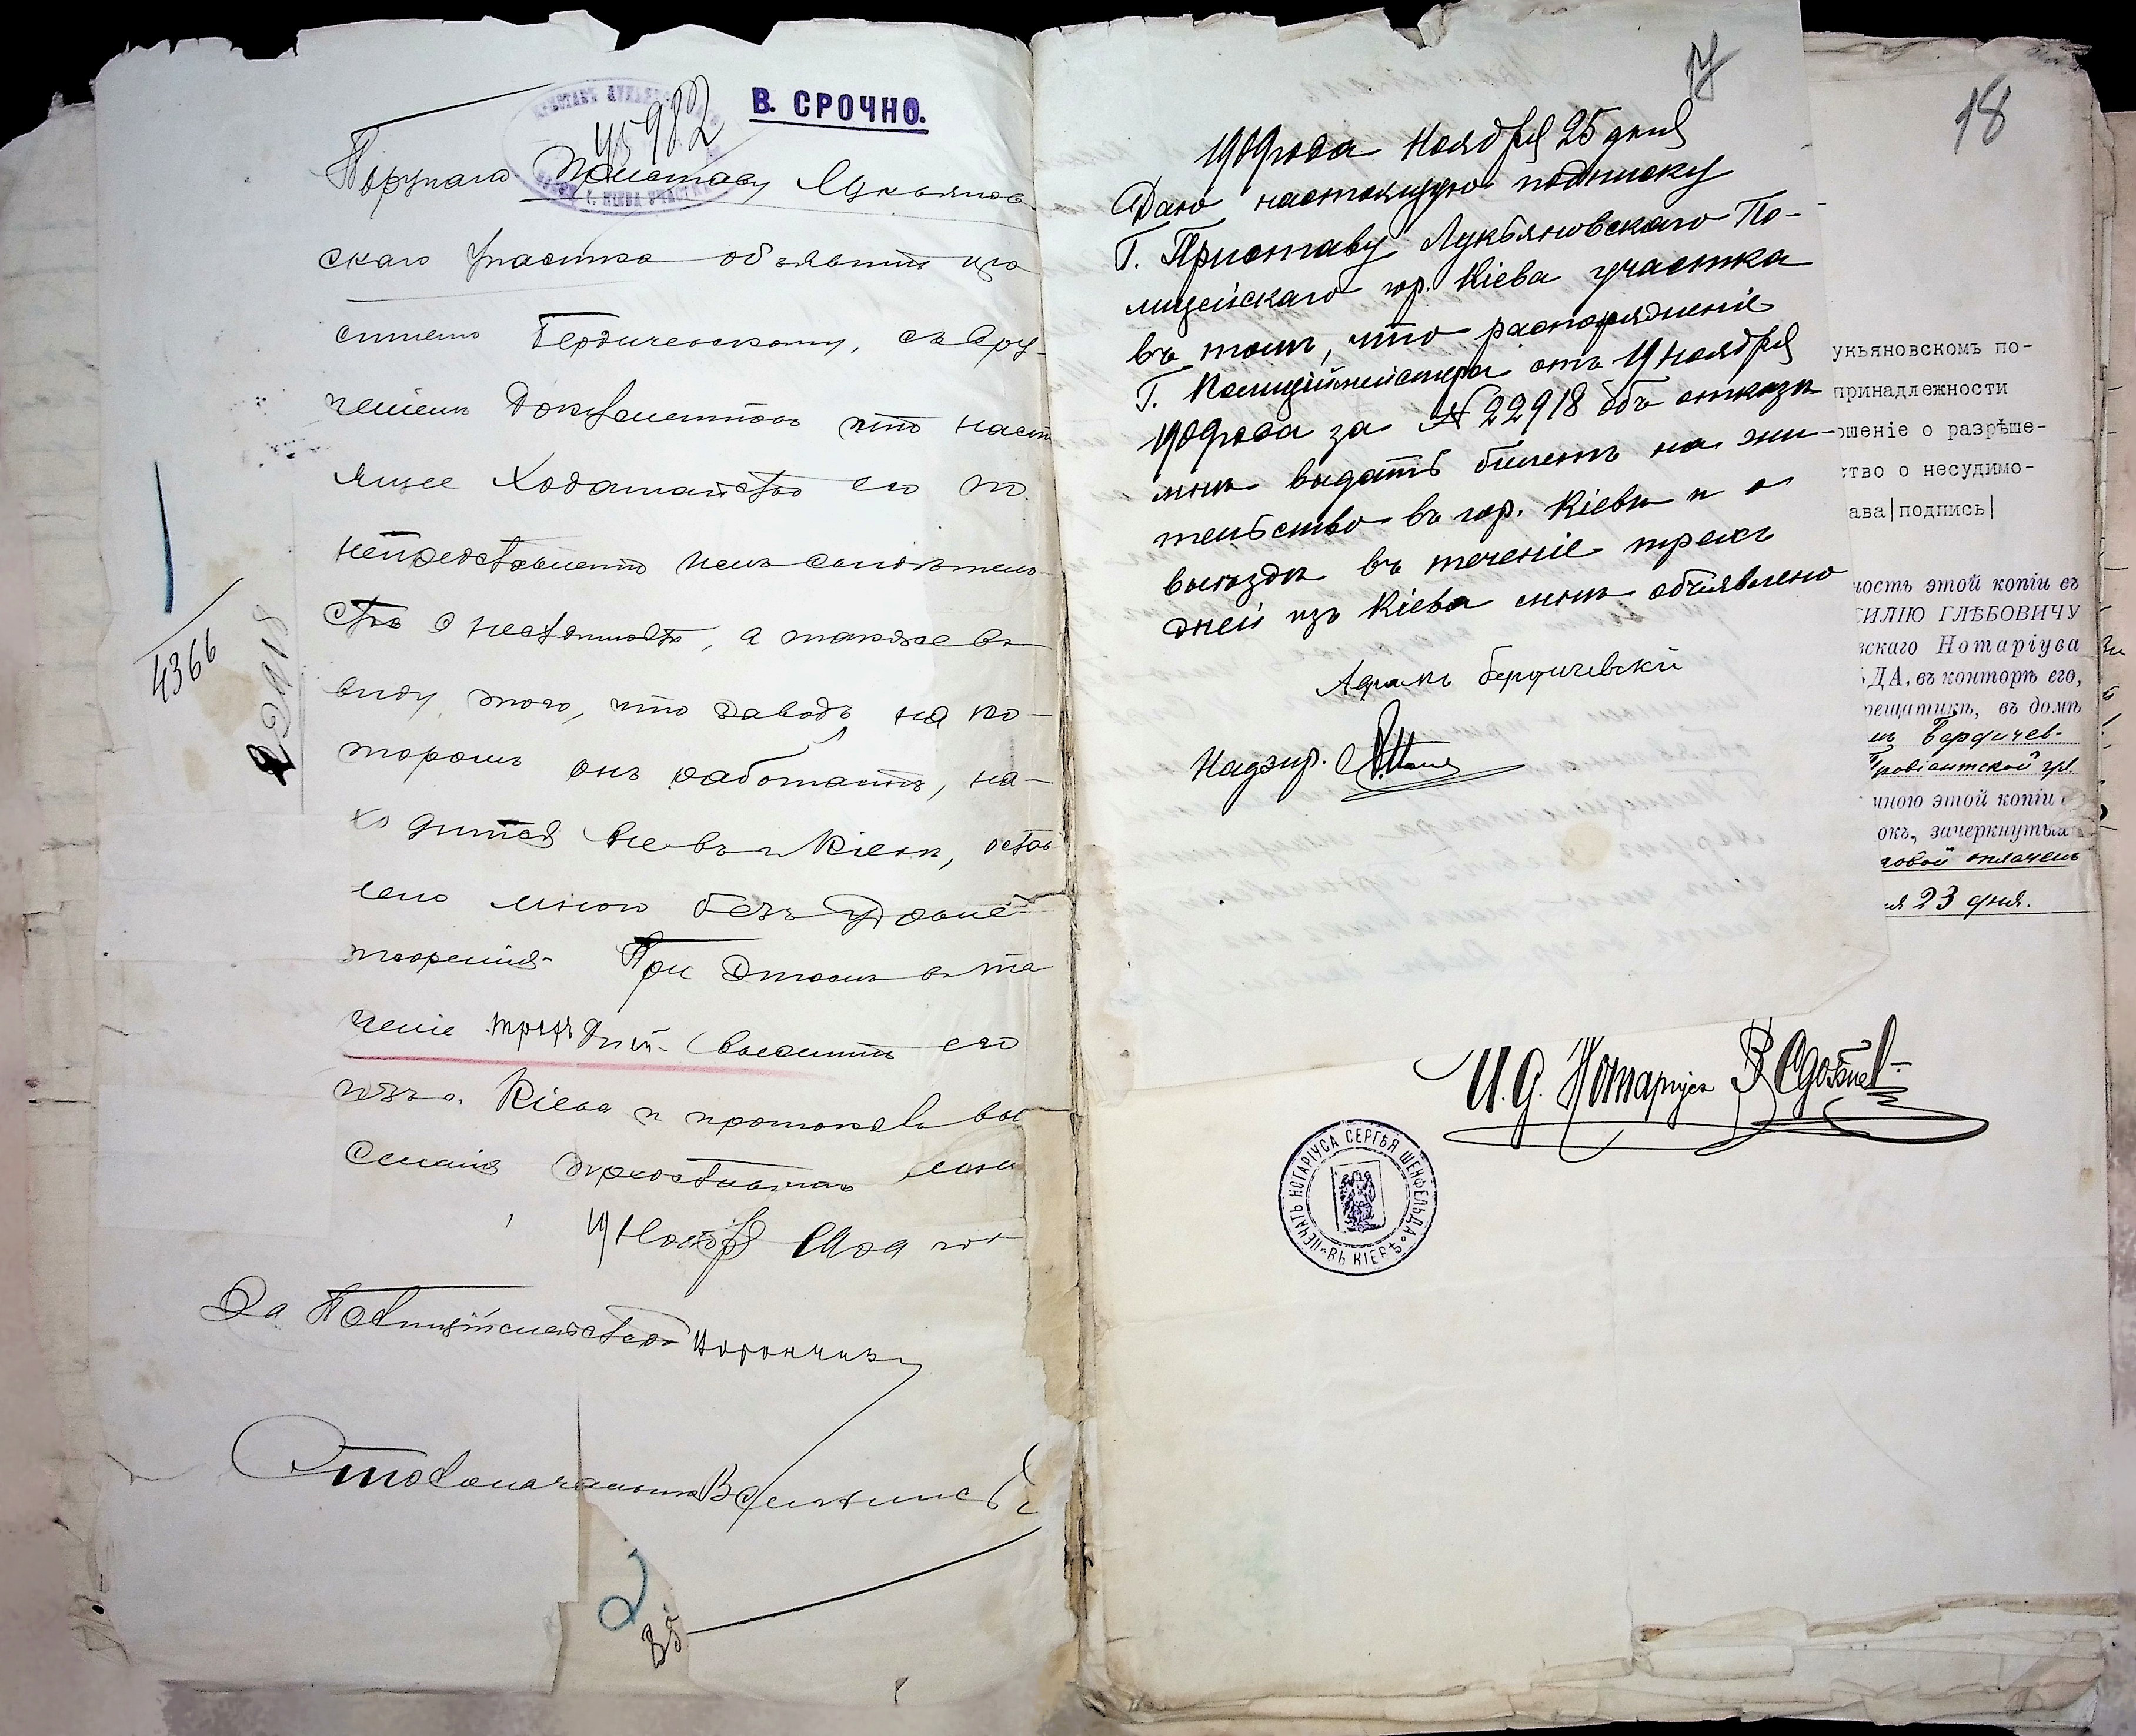 В. СРОЧНО.
45982
Поручаю Приставу Лукьянов-
скаго участка объявить про
сителю Бердичевскому, съ вру-
ченіемъ документовъ что наст
ящее ходатайство его по
непредставленію имъ свидѣтель-
ства о несудимости, а также въ
виду того, что заводъ на ко-
торомъ онъ работаетъ, на-
ходится не въ г. Кіевѣ, остав
лено мною безъ удовле
творенія. При этомъ въ те
ченіе трехъ дней выселить его
изъ г. Кіева и протоколъ вы
селенія представить мнѣ
19 Ноября 1909 го
За Полиціймейстера
Столоначальникъ
4366
22918
2
35
17
1909 года Ноября 25 дня
Даю настоящую подписку
Г. Приставу Лукьяновскаго По-
лицейскаго гор. Кіева участка
въ томъ, что распоряженіе
Г. Полиціймейстера отъ 19 ноября
1909 года за № 22918 объ отказѣ
мнѣ выдать билетъ на жи-
тельство въ гор. Кіевѣ и о
выѣздѣ въ теченіе трехъ
дней изъ Кіева мнѣ объявлено
Бердичевскій
Надзир.
18
укьяновскомъ по-
принадлежности
ошеніе о разрѣше-
ство о несудимо-
ава|подпись|
ность этой копіи съ
СИЛІЮ ГЛѢБОВИЧУ
вскаго Нотаріуса
ДА, въ конторѣ его,
рещатикъ, въ домѣ
мъ Бердичев-
Провіантской ул.
мною этой копіи
окъ, зачеркнутыхъ
говой оплаченъ
я 23 дня.
И. д. Нотаріуса
ПЕЧАТЬ НОТАРІУСА СЕРГѢЯ ШЕНФЕЛЬДА ВЪ КІЕВѢ